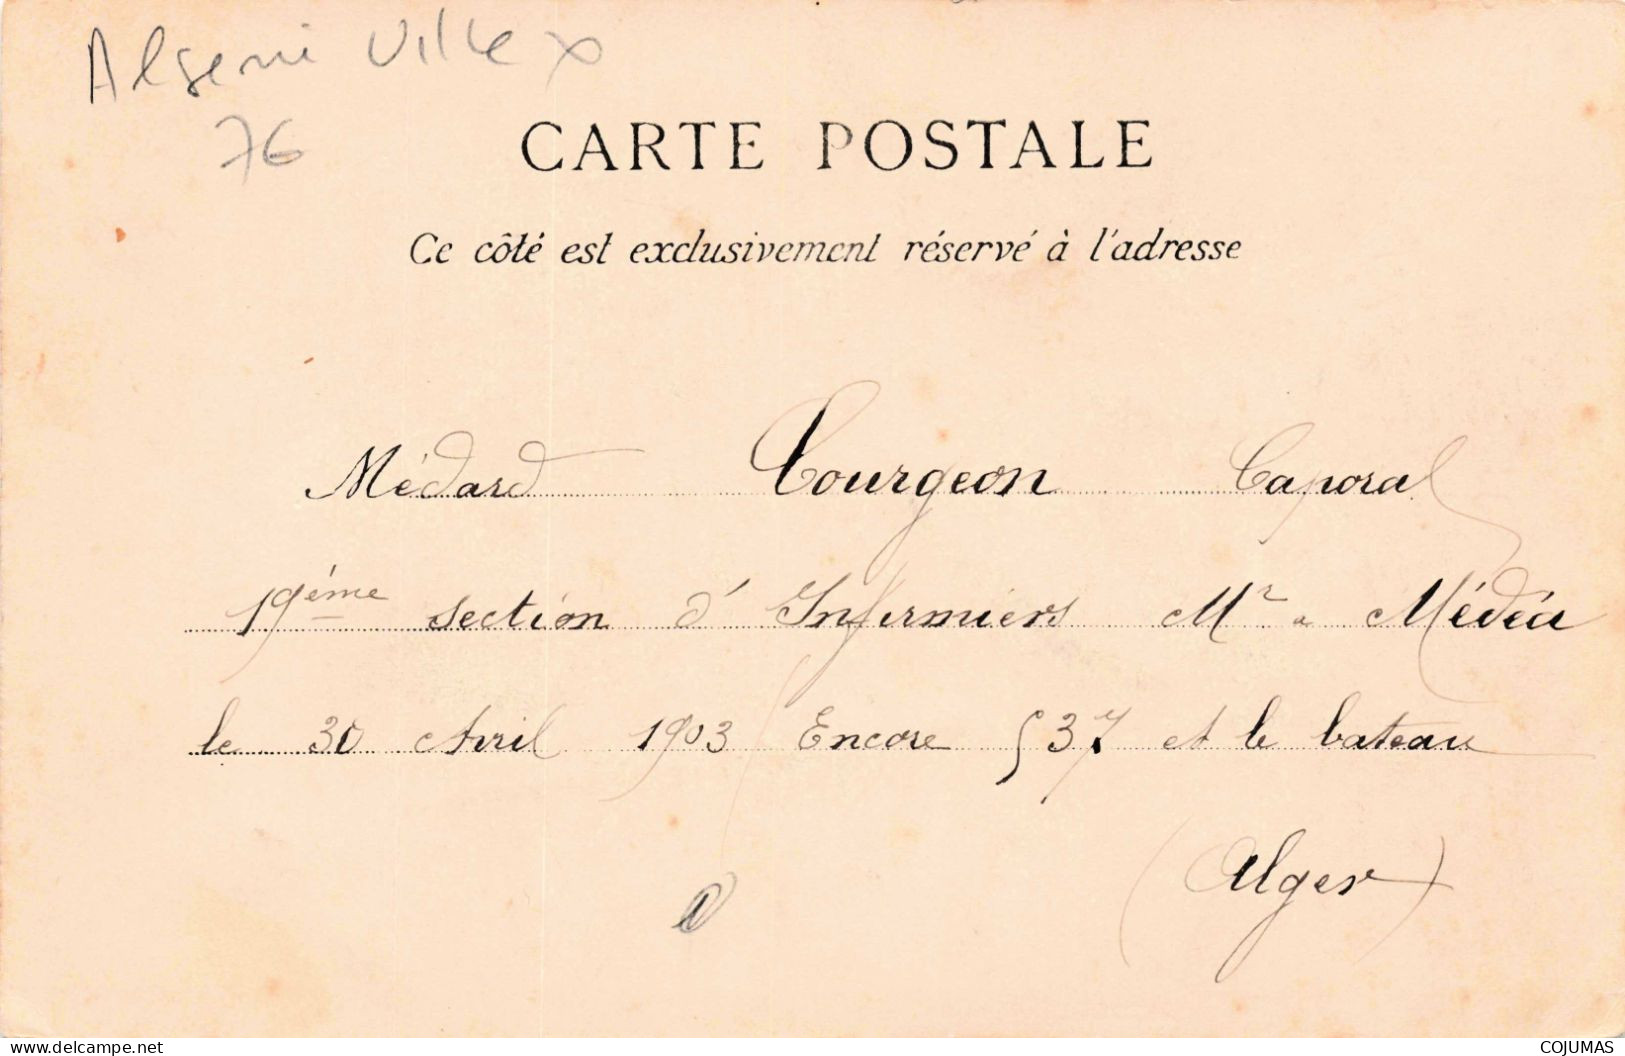 Algerie Ville x
76
CARTE POSTALE
Ce côté est exclusivement réservé à l'adresse
Médard Tourgeon Caporal
19ème section d'Infirmiers Mre a Médéa
le 30 Avril 1903 Encore 537 et le bateau
(Alger)
www.delcampe.net
COJUMAS